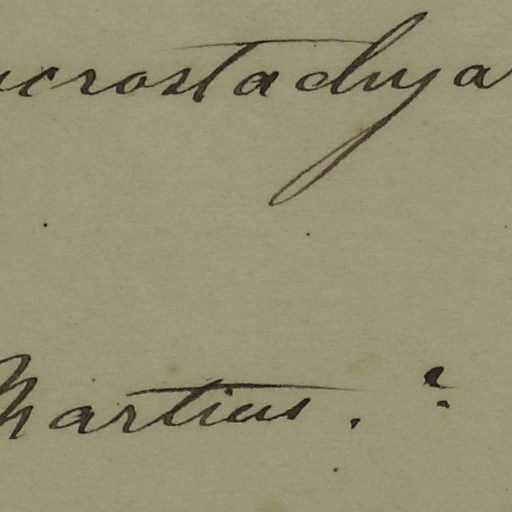 crostachya
Martius. ?